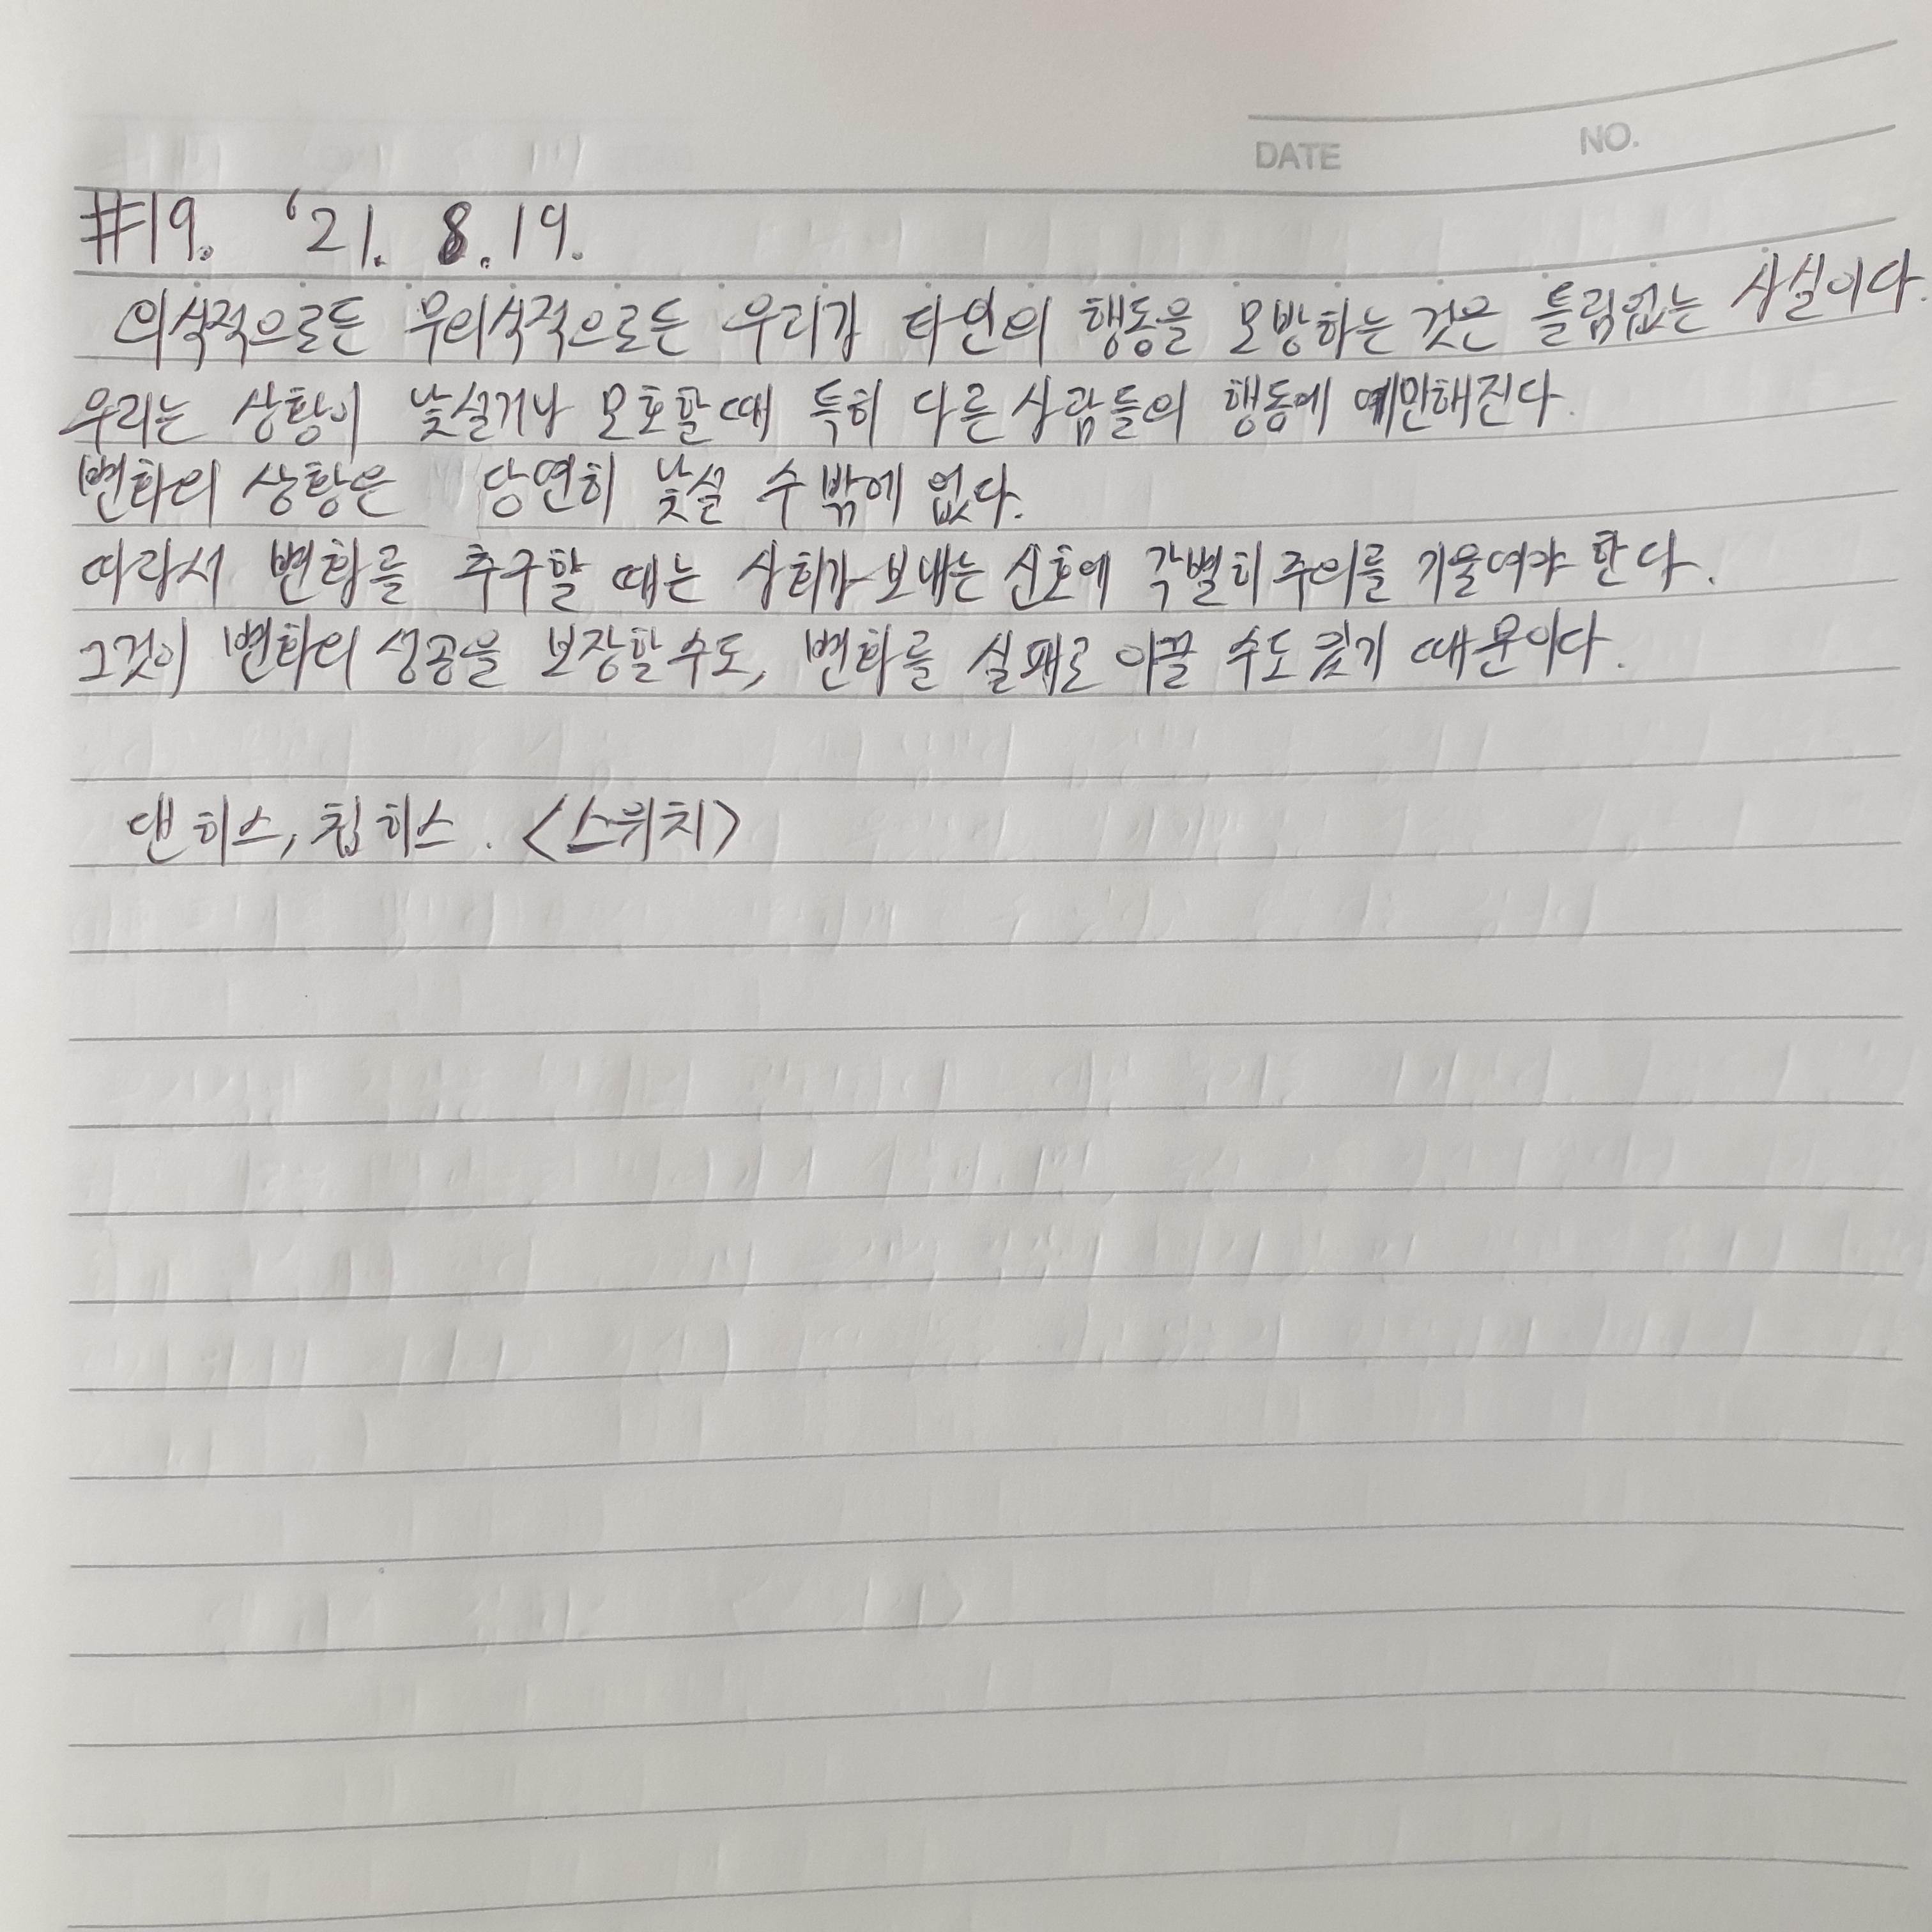 DATE NO.
#19. '21. 8. 19.
의식적으로든 무의식적으로든 우리가 타인의 행동을 모방하는 것은 틀림없는 사실이다.
우리는 상황이 낯설거나 모호할 때 특히 다른 사람들의 행동에 예민해진다.
변화의 상황은 당연히 낯설 수 밖에 없다.
따라서 변화를 추구할 때는 사회가 보내는 신호에 각별히 주의를 기울여야 한다.
그것이 변화의 성공을 보장할 수도, 변화를 실패로 이끌 수도 있기 때문이다.
댄 히스, 칩 히스. <스위치>